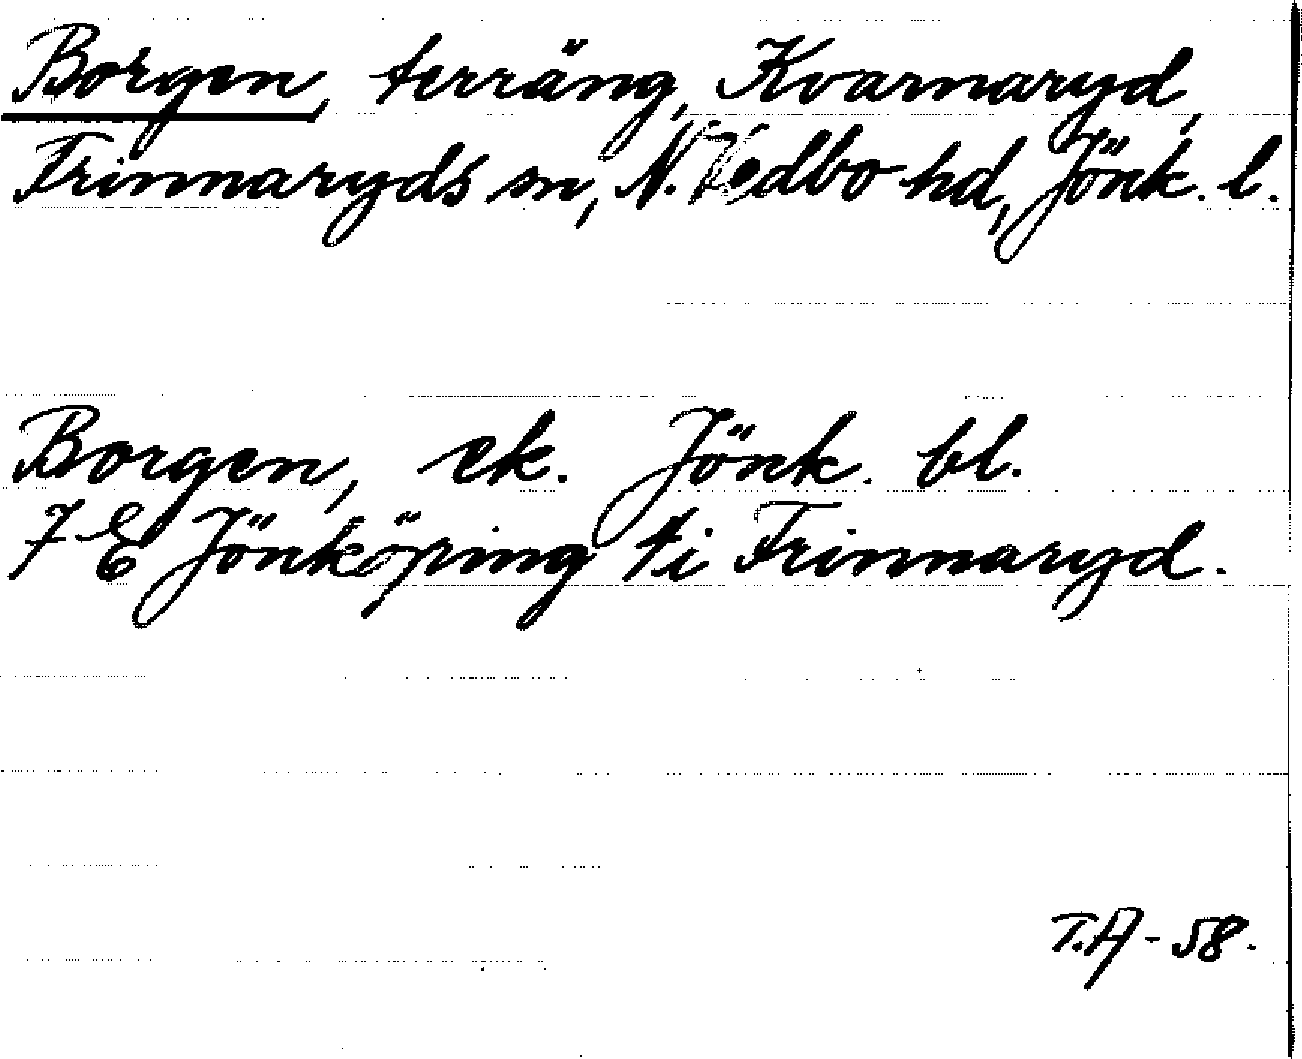 Borgen, terräng, Kvarnaryd,
Frinnaryds sn, N. Vedbo hd, Jönk. l.
Borgen, ek. Jönk. bl.
7 E Jönköping ti Frinnaryd.
T.A - 58.